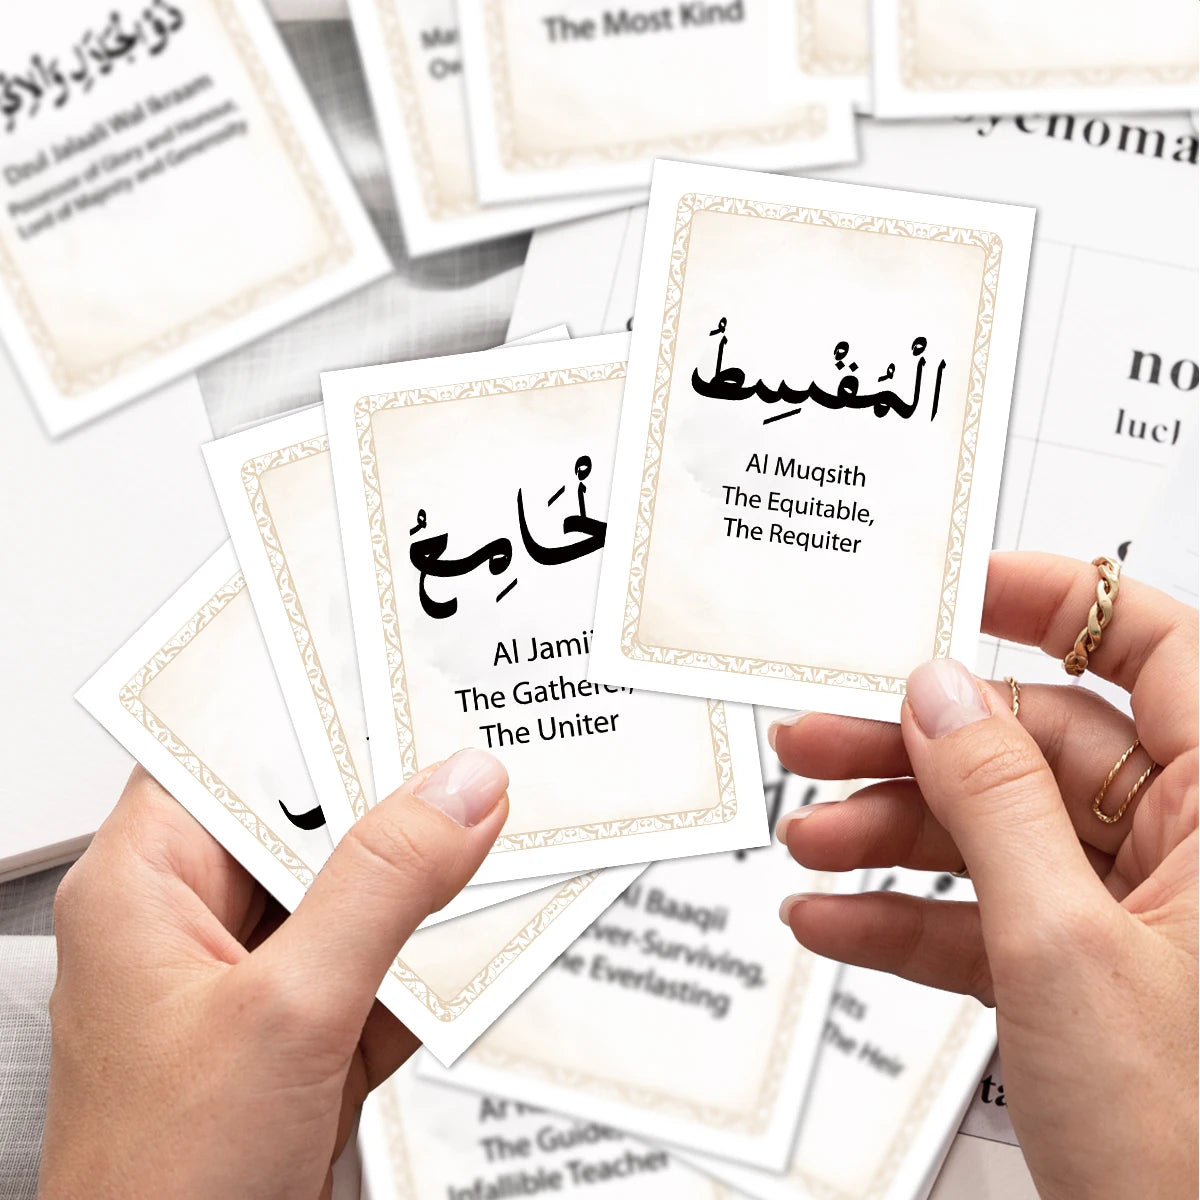 ذُو الْجَلَالِ وَالْإِكْرَامِ
Dzul Jalaali Wal Ikraam
Possessor of Glory and Honour,
Lord of Majesty and Generosity
The Most Kind
no
الْمُقْسِطُ
Al Muqsith
The Equitable,
The Requiter
الْجَامِعُ
Al Jamii
The Gatherer,
The Uniter
Al Baaqii
Ever-Surviving,
The Everlasting
The Heir
The Guide,
Infallible Teacher